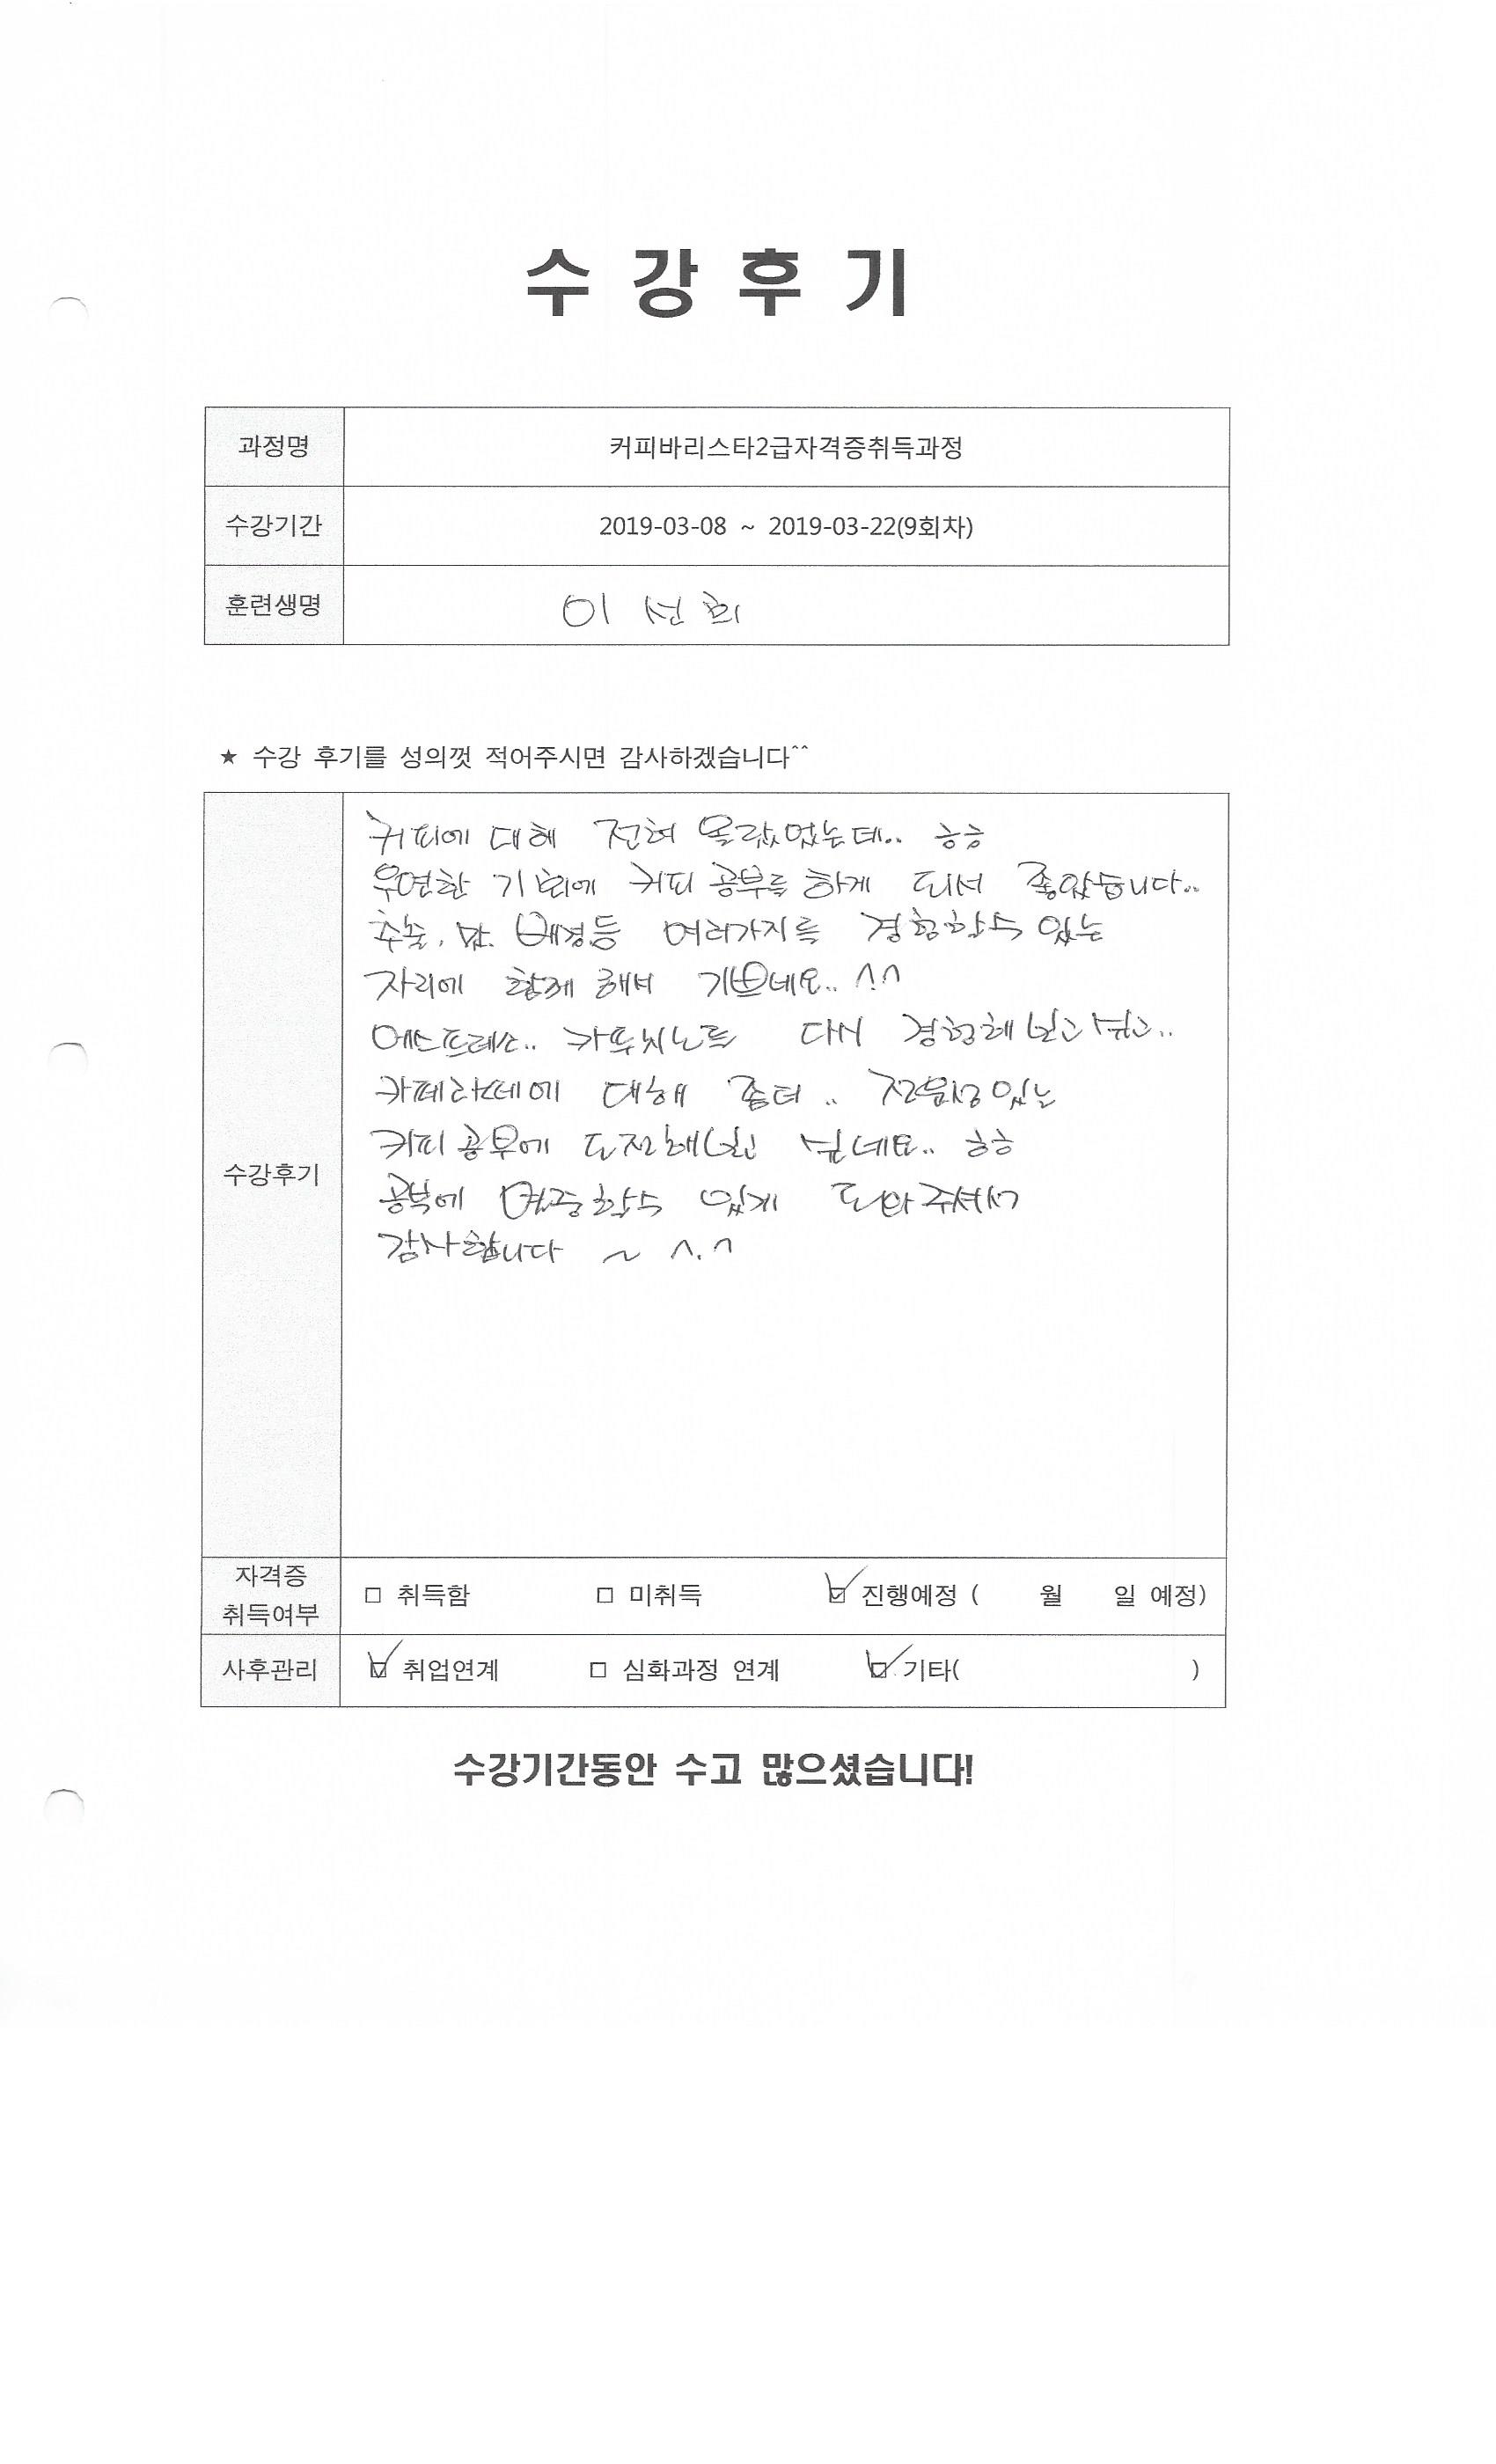 수 강 후 기
과정명 커피바리스타2급자격증취득과정
수강기간 2019-03-08 ~ 2019-03-22(9회차)
훈련생명 이 선 희
★ 수강 후기를 성의껏 적어주시면 감사하겠습니다^^
수강후기
커피에 대해 전혀 몰랐었는데.. ㅎㅎ
우연한 기회에 커피 공부를 하게 되서 좋았습니다..
추출, 맛, 배경등 여러가지를 경험할수 있는
자리에 함께 해서 기쁘네요.. ^.^
에스프레소.. 카푸치노를 다시 경험해보고 싶고..
카페라떼에 대해 좀더 .. 전문성있는
커피 공부에 도전해보고 싶네요.. ㅎㅎ
공부에 열중할수 있게 도와 주셔서
감사합니다 ~ ^.^
자격증 취득여부 □ 취득함 □ 미취득 ☑ 진행예정 ( 월 일 예정)
사후관리 ☑ 취업연계 □ 심화과정 연계 ☑ 기타( )
수강기간동안 수고 많으셨습니다!